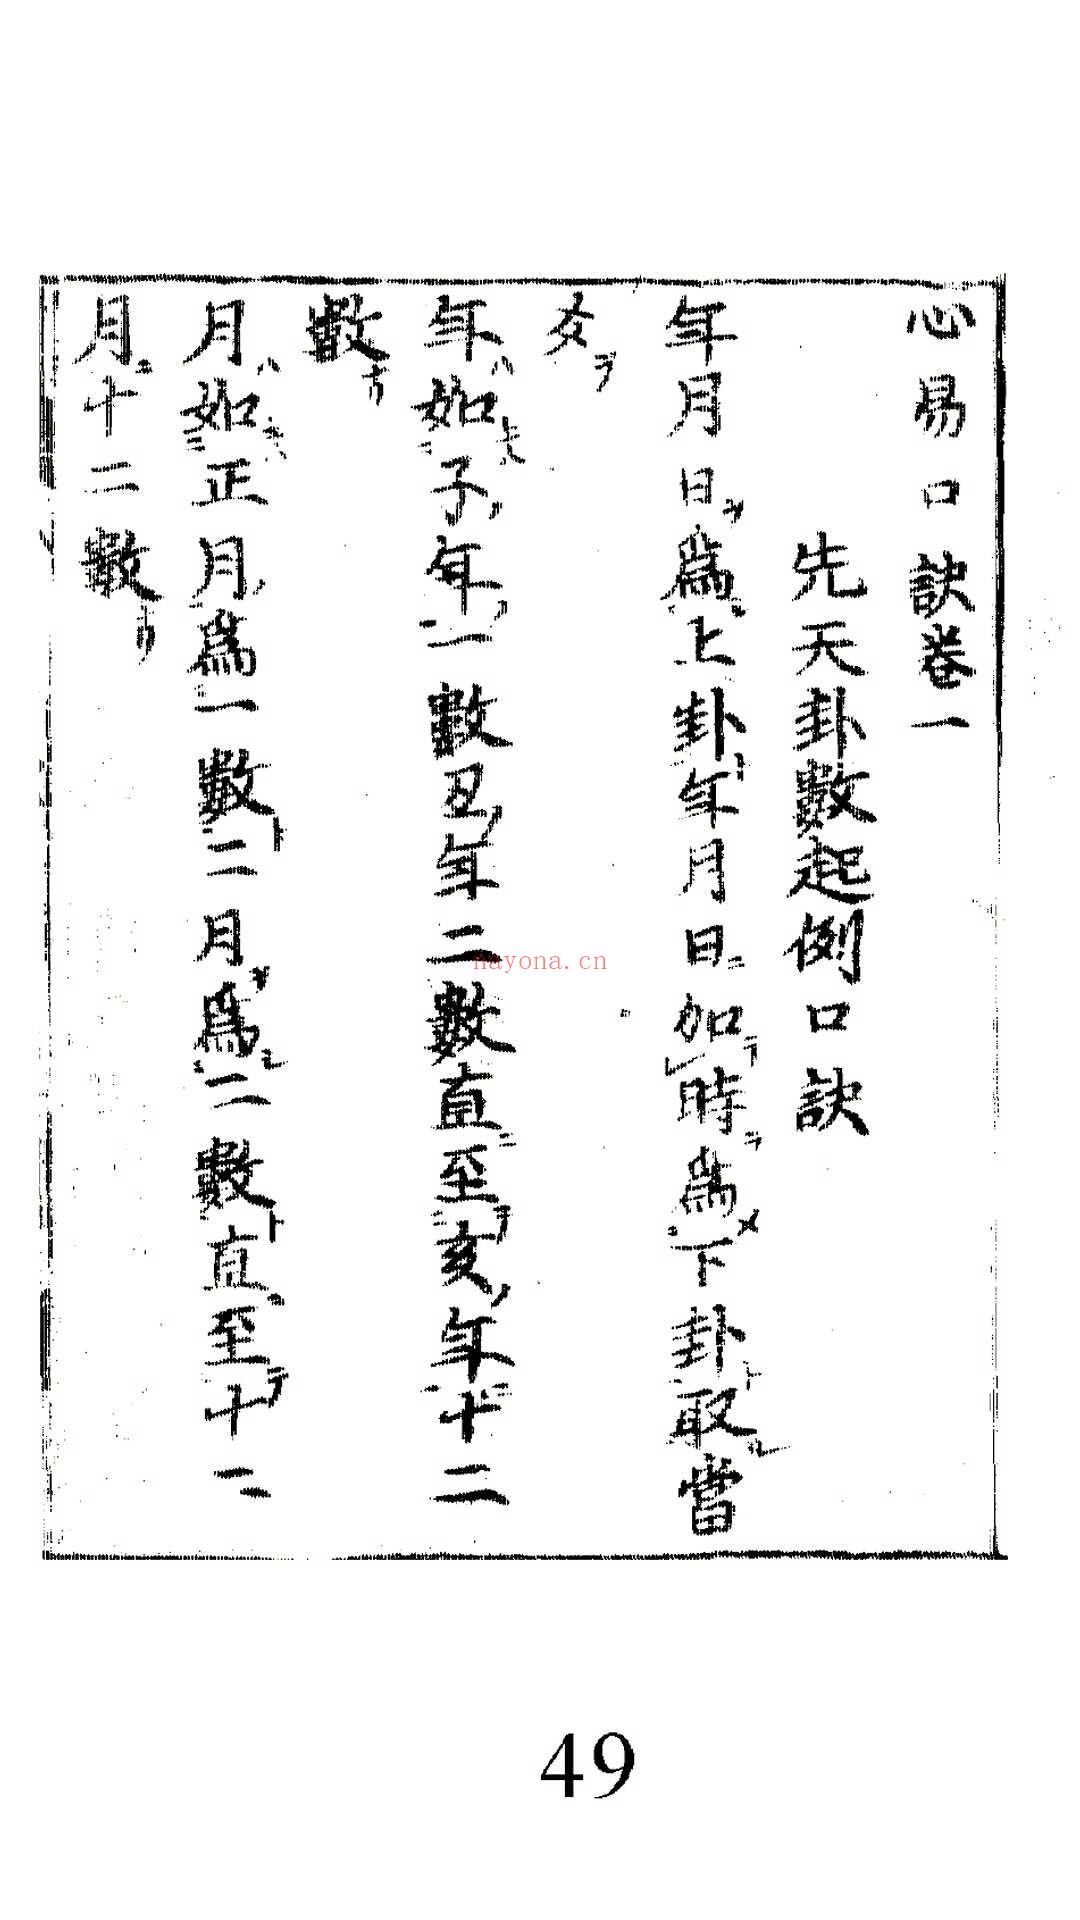 心易口訣卷一
先天卦數起例口訣
年月日為上卦年月日加時為下卦取當
爻
年如子年一數丑年二數直至亥年十二
數
月如正月為一數二月為二數直至十二
月十二數
nayona.cn
49